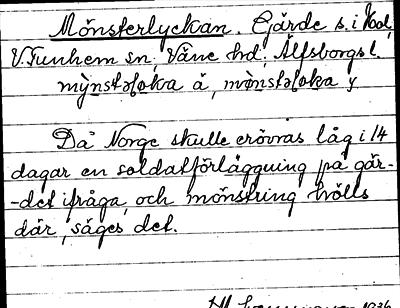 Mönsterlyckan. Gärde s. i Kod,
V. Tunhem sn; Väne hd; Älfsborgs l.
mỳnstəḷəka å, mỳnstəḷəka y
Då Norge skulle erövras låg i 14
dagar en soldatförläggning på gär-
-det ifråga, och mönstring hölls
där, säges det.